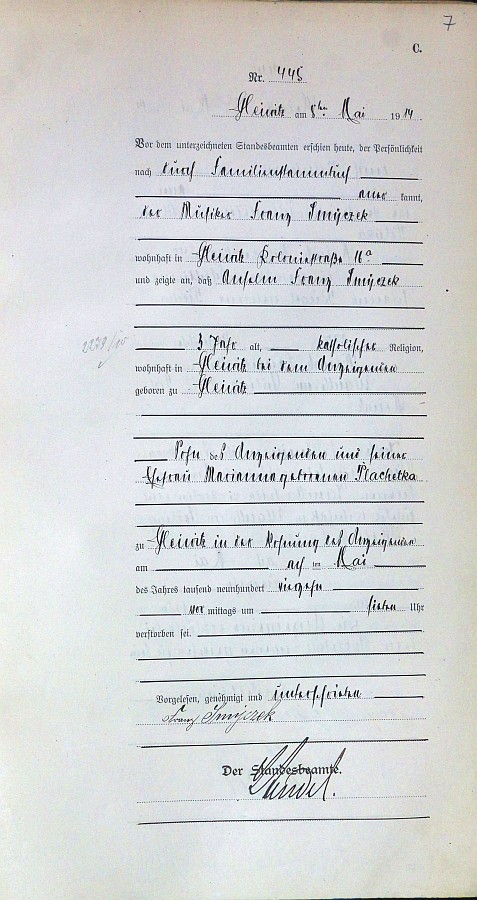 7
C.
Nr. 445
Gleiwitz am 8ten Mai 1914.
Vor dem unterzeichneten Standesbeamten erschien heute, der Persönlichkeit
nach durch Familienstammbuch
aner kannt,
der Musiker Franz Smyczek
wohnhaft in Gleiwitz Koloniestraße 16a
und zeigte an, daß Anselm Franz Smyczek
3 Jahr alt, katholischer Religion,
wohnhaft in Gleiwitz bei dem Anzeigenden
geboren zu Gleiwitz
Sohn des Anzeigenden und seiner
Ehefrau Marianna geborenen Plachetka
zu Gleiwitz in der Wohnung des Anzeigenden
am acht ten Mai
des Jahres tausend neunhundert vierzehn
vor mittags um sieben Uhr
verstorben sei.
Vorgelesen, genehmigt und unterschrieben
Franz Smyczek
Der Standesbeamte.